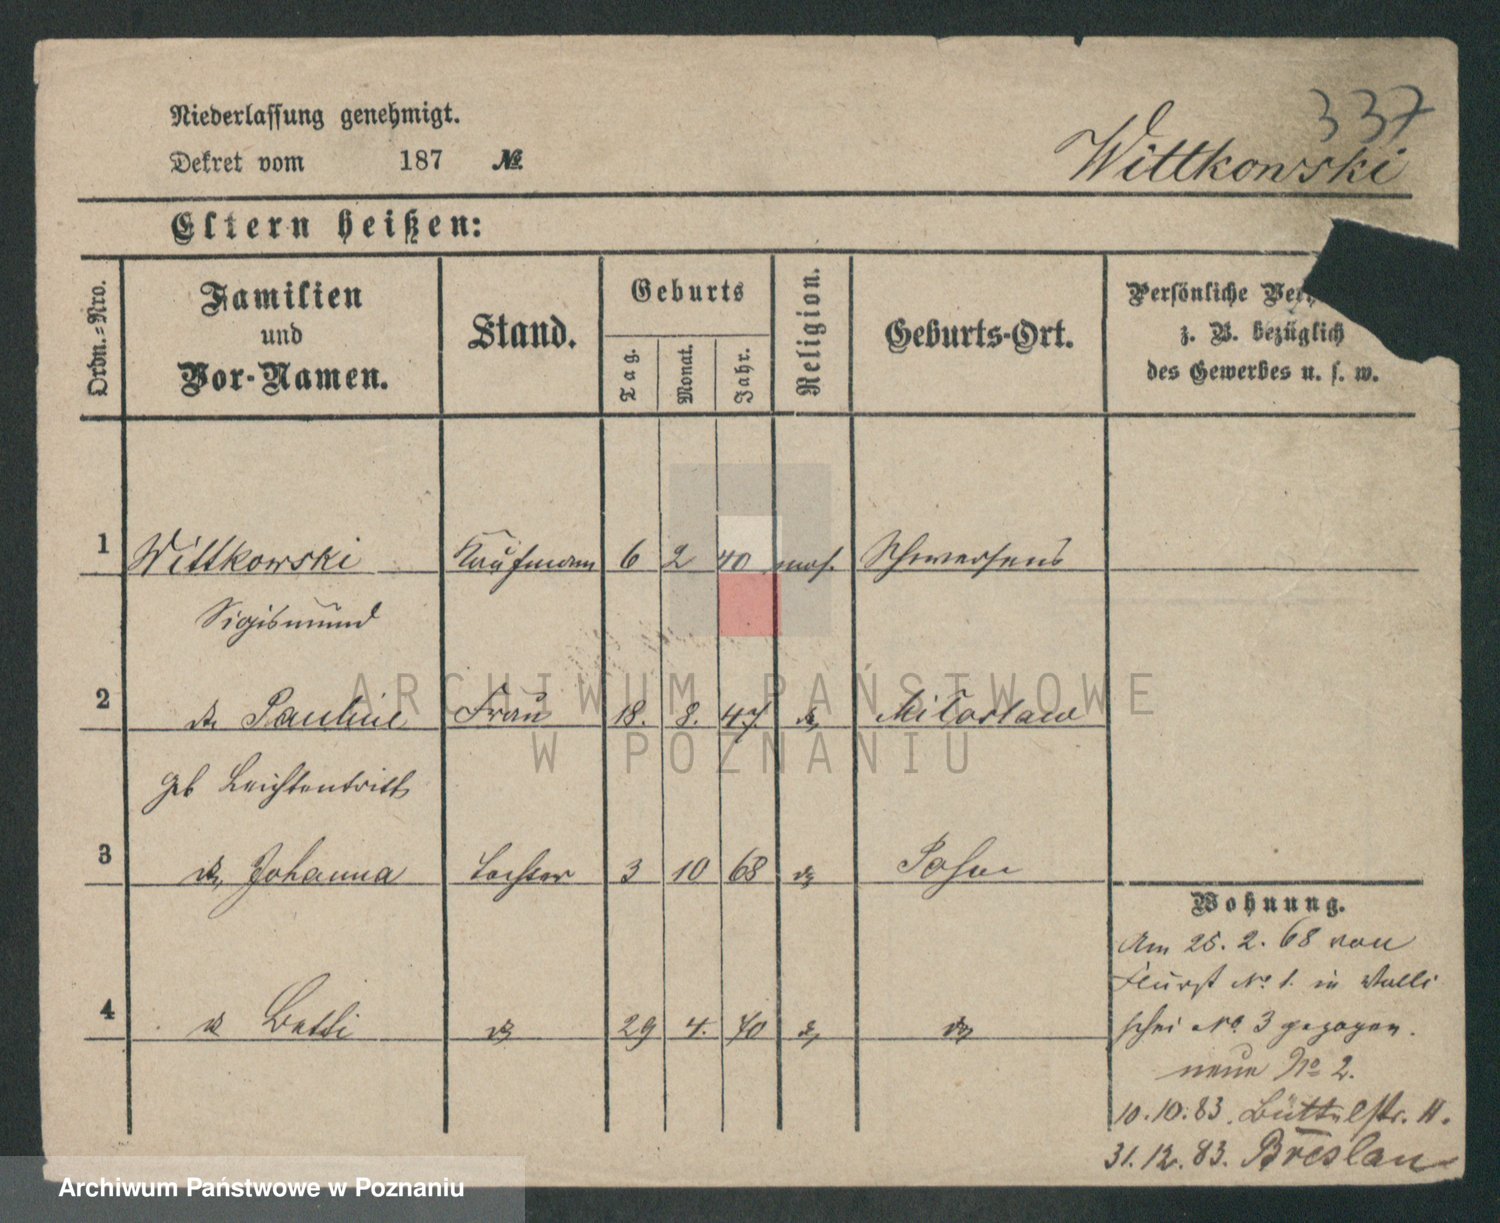 337
Niederlassung genehmigt.
Dekret vom 187 №
Wittkowski
Eltern heißen:
Ordn.-Nro.
Familien und Vor-Namen.
Stand.
Geburts
Tag.
Monat.
Jahr.
Religion.
Geburts-Ort.
Persönliche
z. B. bezüglich
des Gewerbes u. s. w.
1 Wittkowski Kaufmann 6 2 40 mos. Schwersenz
Sigismund
2 do Pauline Frau 18. 8. 47. do Miloslaw
geb Leichtentritt
3 do Johanna Tochter 3 10 68 do Posen
4 do Betti do 29 4. 70 do do
Wohnung.
Am 25. 2. 68 von
No 1. in Walli
schei No. 3 gezogen.
neue No 2.
10.10.83. Büttelstr. 11.
31.12.83. Breslau
ARCHIWUM PAŃSTWOWE
W POZNANIU
Archiwum Państwowe w Poznaniu